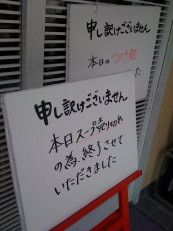 申し訳ございません
本日のつけ麺
申し訳ございません
本日スープ売り切れ
の為、終了させて
いただきました